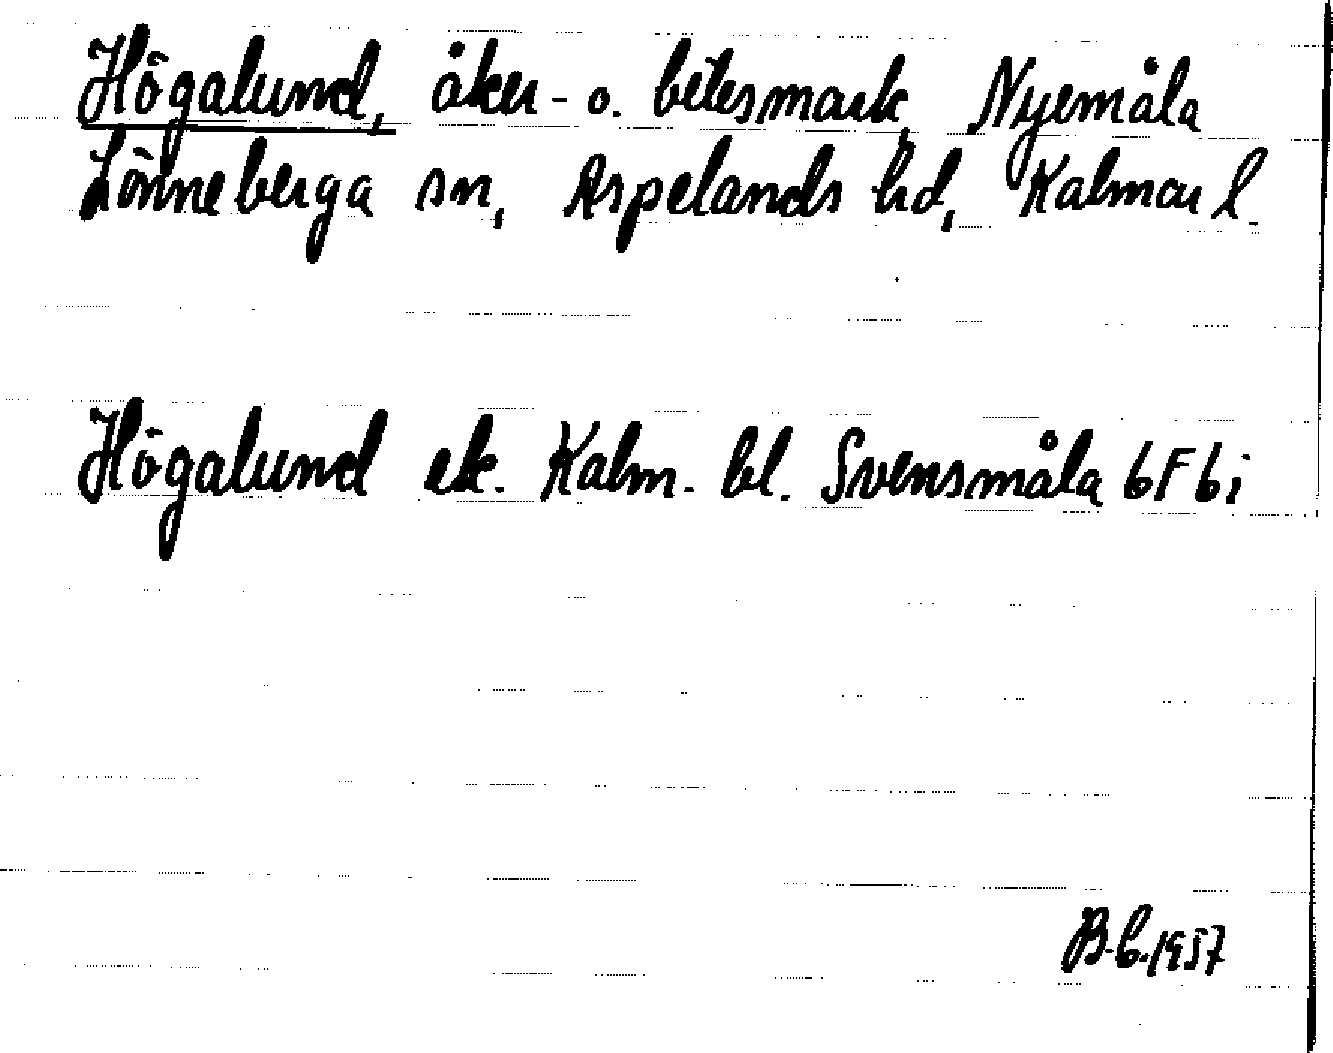 Högalund, åker- o. betesmark, Nyemåla
Lönneberga sn, Aspelands hd, Kalmar l.
Högalund ek. Kalm. bl. Svensmåla 6F6i
B-b. 1957